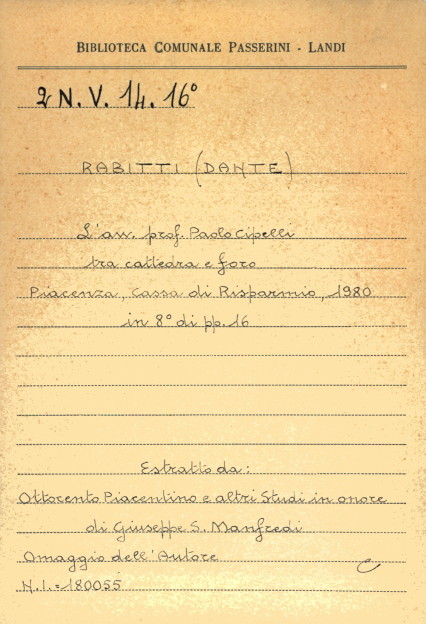 BIBLIOTECA COMUNALE PASSERINI - LANDI
2 N. V. 14. 16°
RABITTI (DANTE)
L'avv. prof. Paolo Cipelli
tra cattedra e foro
Piacenza, Cassa di Risparmio, 1980
in 8° di pp. 16
Estratto da:
Ottocento Piacentino e altri Studi in onore
di Giuseppe S. Manfredi
Omaggio dell'Autore
N.I.=180055